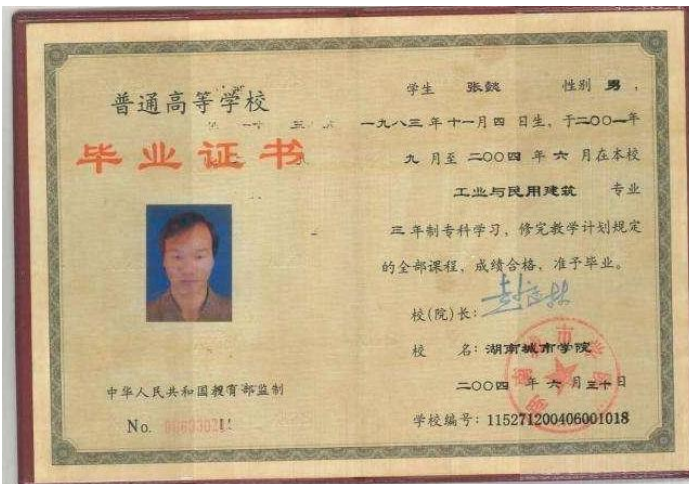 普通高等学校
毕业证书
中华人民共和国教育部监制
No.
学生 张懿 性别 男，
一九八三年十一月四日生，于二〇〇一年
九月至二〇〇四年六月在本校
工业与民用建筑 专业
三年制专科学习，修完教学计划规定
的全部课程，成绩合格，准予毕业。
校(院)长：
校 名：湖南城市学院
二〇〇四年六月三十日
学校编号：115271200406001018